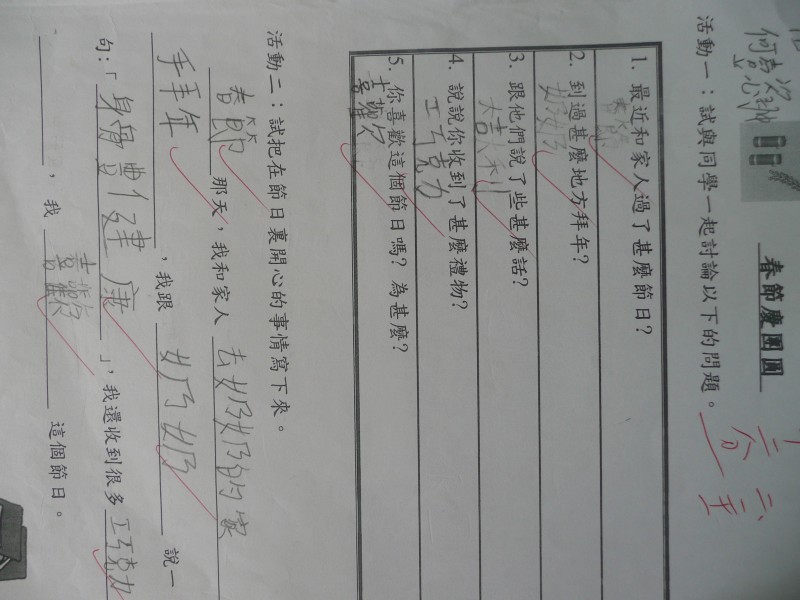 春節慶團圓
活動一：試與同學一起討論以下的問題。
1. 最近和家人過了甚麼節日？
春節
2. 到過甚麼地方拜年？
奶奶
3. 跟他們說了些甚麼話？
大吉大利
4. 說說你收到了甚麼禮物？
工巧克力
5. 你喜歡這個節日嗎？為甚麼？
喜歡
活動二：試把在節日裏開心的事情寫下來。
春節那天，我和家人去奶奶的家
手拜年，我跟奶奶說一
句：「身體健康」，我還收到很多工巧克力
，我喜歡這個節日。